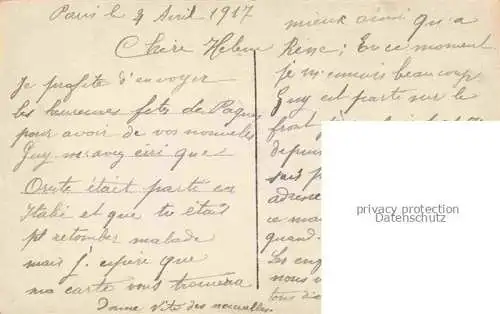 Paris le 4 Avril 1917
Chère Helene
Je profite d'envoyer
les heureuses fetes de Paques
pour avoir de vos nouvelles
Guy m'avez ecri que
Oreste était parti en
Italie et que tu était
retomber malade
mais j'espére que
ma carte vous trouvera
Donne vite des nouvelles
mieux ainsi qu'a
Rene; En ce moment
je m'ennuis beaucoup
Guy est parti sur le
front
depuis
sais
adresse
ce ma
quand
Les
nous v
tous di
privacy protection
Datenschutz